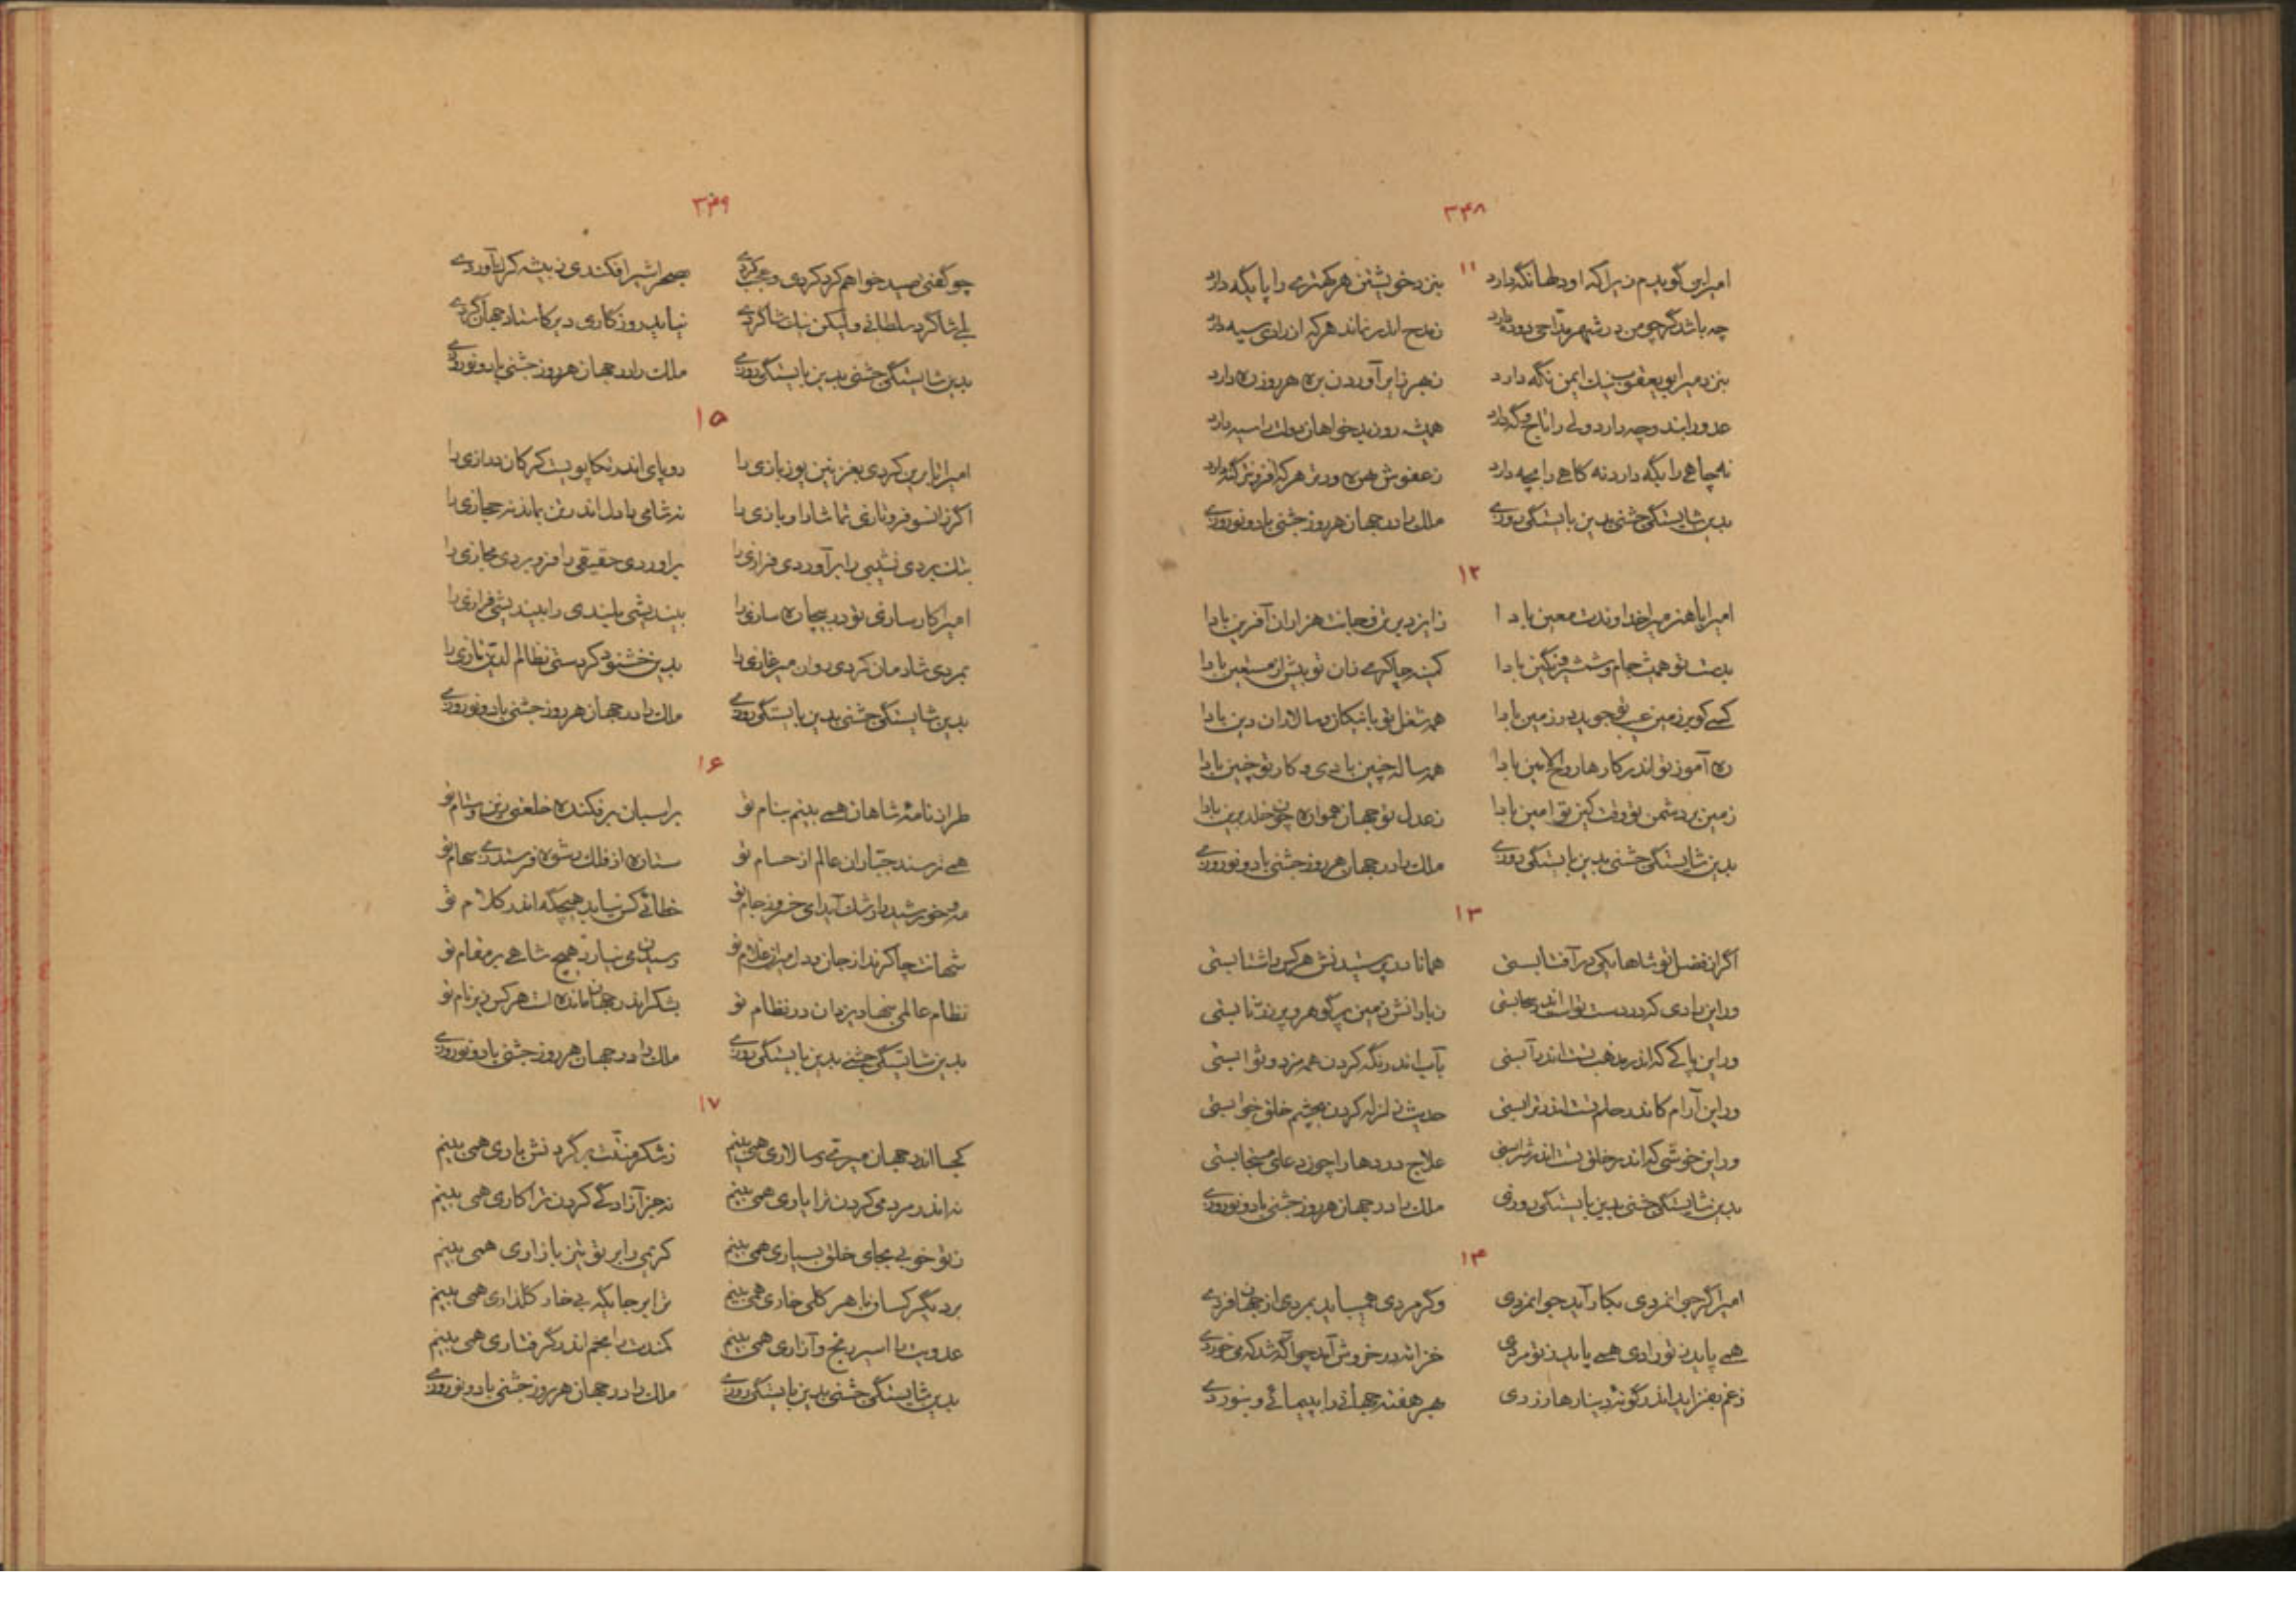 ۳۴۸
۱۱
امیرا من گویدم زیرا که او دلها نگه دارد بنزد خویشتن هر کهتری را پایگه دارد
چه باشد گر چو من در شهر مداحی دو ده دارد ز مدح اندر نماند هر که ازرادی سپه دارد
بنزد میر ابو یعقوب نیک ایمن نگه دارد ز بهر زایر آوردن بره هر روز ره دارد
عدو را بند و چه دارد ولی را تاج و گه دارد همیشه روز بدخواهان دولت را سیه دارد
نه جاهی را بگه دارد نه کاهی را بچه دارد ز عفوش بهره ور تر هر که افزونتر گنه دارد
بدین شایستگی جشنی بدین بایستگی روزی ملک را در جهان هر روز جشنی باد و نوروزی
۱۲
امیرا با هنر میرا خداوندت معین بادا ز ایزد بر تن و جانت هزاران آفرین بادا
بدست تو همیشه جام و شمشیر و نگین بادا کمینه چاکری زان تو بیش از مستعین بادا
کسی کو بر زمین عیب تو جوید در زمین بادا همه شغل تو با نیکان و سالاران دین بادا
ره آموز تو اندر کارها روح الامین بادا همه ساله چنین بادی و کار تو چنین بادا
زمین بر دشمن تو وقت کین تو امین بادا ز عدل تو جهان همواره چون خلد برین بادا
بدین شایستگی جشنی بدین بایستگی روزی ملک را در جهان هر روز جشنی باد و نوروزی
۱۳
اگر از فضل تو شاها یکی در آفتابستی همانا در پرستیدنش هر کس را شتابستی
ور این رادی که در دست تو است اندر سحابستی ز بارانش زمین پر گوهر و پر زر نابستی
ور این پاکی که اندر مذهب تست اندر آبستی بآب اندر نگه کردن همه مزد و ثوابستی
ور این آرام کاندر حلم تست اندر ترابستی حدیث زلزله کردن بچشم خلق خوابستی
ور این خوشی که اندر خلق تست اندر شرابستی علاج دردها را چون دعای مستجابستی
بدین شایستگی جشنی بدین بایستگی روزی ملک را در جهان هر روز جشنی باد و نوروزی
۱۴
امیرا گر جوانمردی بکار آید جوانمردی وگر مردی همیباید بمردی از جهان فردی
همی پاید ز تو رادی همی باید ز تو مردی خزانه در خروش آید چو آگه شد که می خوردی
ز غم بفزاید اندر گونه دینارها زردی بهر هفته جهانی را بپیمائی و بنوردی
۳۴۹
چو گفتی صید خواهم کرد کردی و عجب کردی بصحرا شیر افکندی ز بیشه کرگ آوردی
بلی شاگرد سلطانی ولیکن نیک شاگردی نیاید روز کاری دیر کاستاد جهان گردی
بدین شایستگی جشنی بدین بایستگی روزی ملک را در جهان هر روز جشنی باد و نوروزی
۱۵
امیرا تا برین کردی بغزنین یوز بازی را دو پای اندر تکاپویست کرکان درازی را
اگر زانسو فرو تازی تماشا را و بازی را نه شامی با دل اندر تن بماند نه حجازی را
بتک بردی نشیبی را برآوردی فرازی را برآوردی حقیقی را فرو بردی مجازی را
امیرا کارسازی تو در بیچاره سازی را بیندیشی بلندی را بیندیشی فرازی را
بمردی شادمان کردی روان میر غازی را بدین خشنود کردستی نظام الدین تازی را
بدین شایستگی جشنی بدین بایستگی روزی ملک را در جهان هر روز جشنی باد و نوروزی
۱۶
طراز نامهٔ شاهان همی بینم بنام تو بر اسبان بر فکنده خلعتی زین و ستام تو
همی ترسند جباران عالم از حسام تو ستاره از فلک رشوه فرستد زی سهام تو
مه و خورشید را رشک آید ای خسرو ز جام تو خطائی کس نیابد هیچگه اندر کلام تو
شهانت چاکرند از جان و دل میران غلام تو رسیدن می نیارد هیچ شاهی بر مقام تو
نظام عالمی بنهاد یزدان در نظام تو بشکر اندر جهان مانده است هر کس زیر نام تو
بدین شایستگی جشنی بدین بایستگی روزی ملک را در جهان هر روز جشنی باد و نوروزی
۱۷
کجا اندر جهان میری و سالاری همی بینم ز شکر و منت بر گردنش باری همی بینم
نه اندر مردمی کردن ترا یاری همی بینم نه جز آزادگی کردن ترا کاری همی بینم
ز تو خوبی بجای خلق بسیاری همی بینم کریمی را بر تو تیز بازاری همی بینم
بر دیگر کسان با هر گلی خاری همی بینم ترا بر جایگه بی خار گلزاری همی بینم
عدویت را اسیر رنج و آزاری همی بینم کمندت را بخم اندر گرفتاری همی بینم
بدین شایستگی جشنی بدین بایستگی روزی ملک را در جهان هر روز جشنی باد و نوروزی